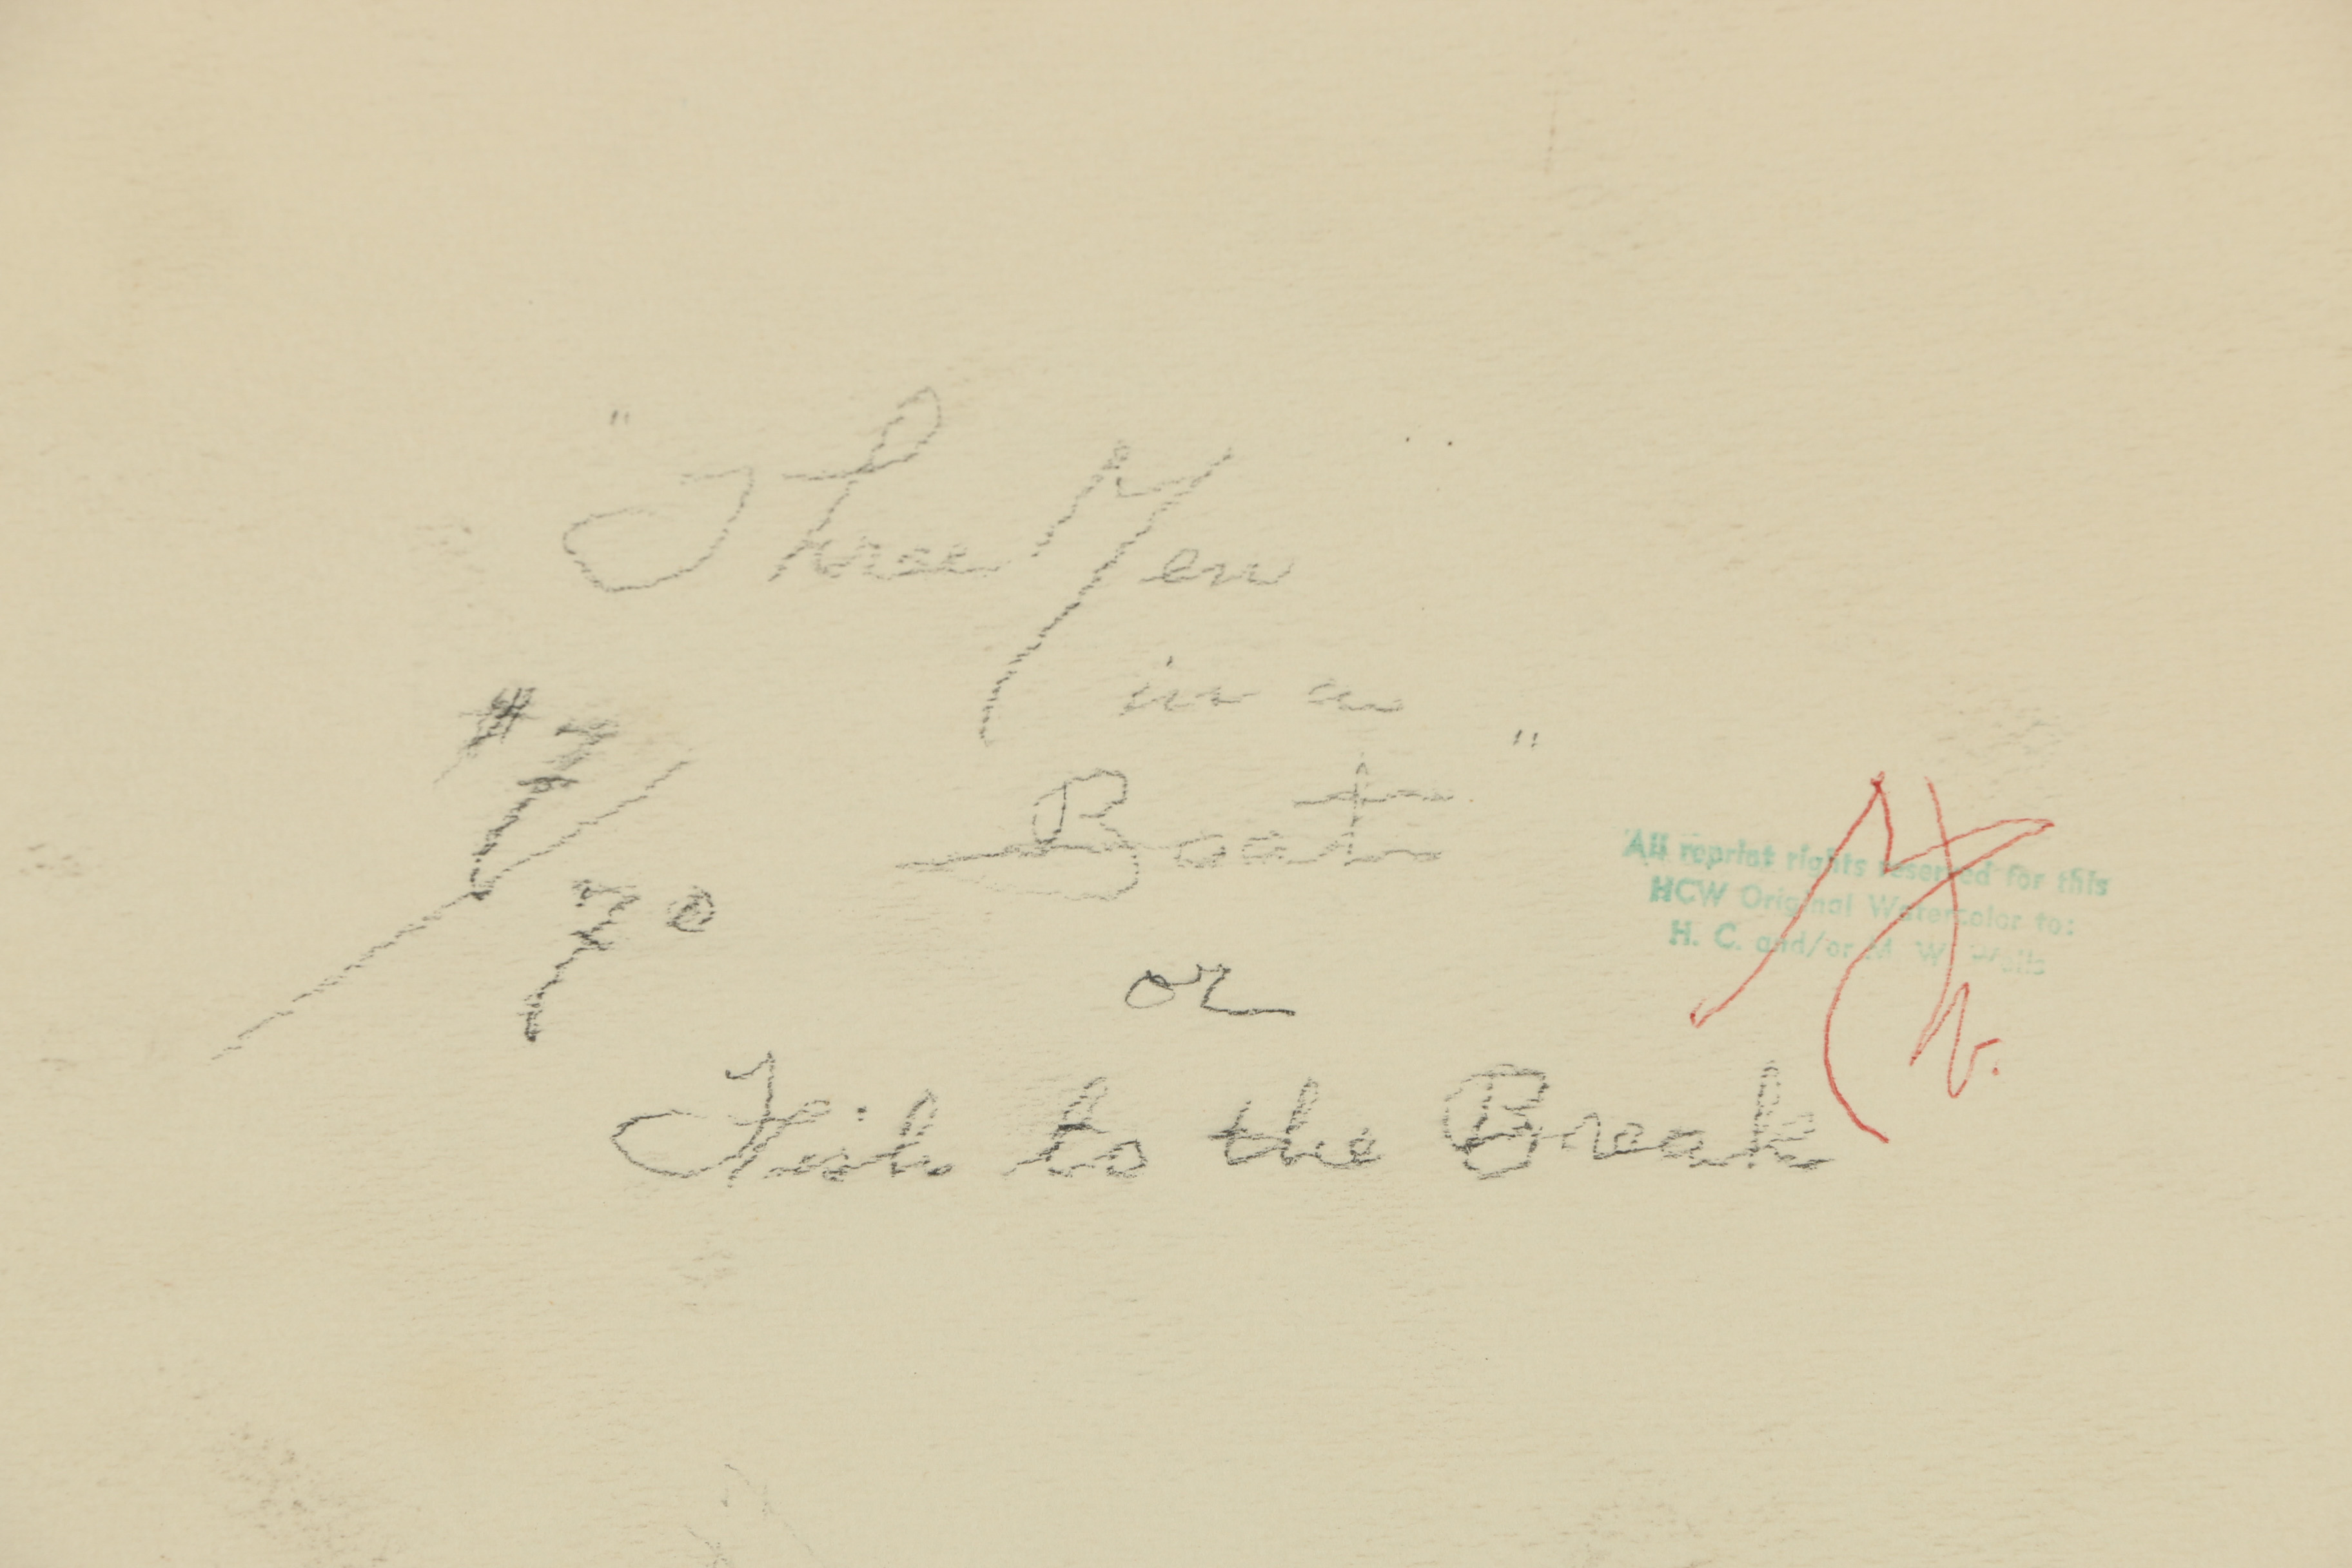 "Three Men
in a
Boat"
#7/70
or
Fish to the Break
All reprint rights reserved for this
HCW Original Watercolor to:
H. C. and/or M. W.